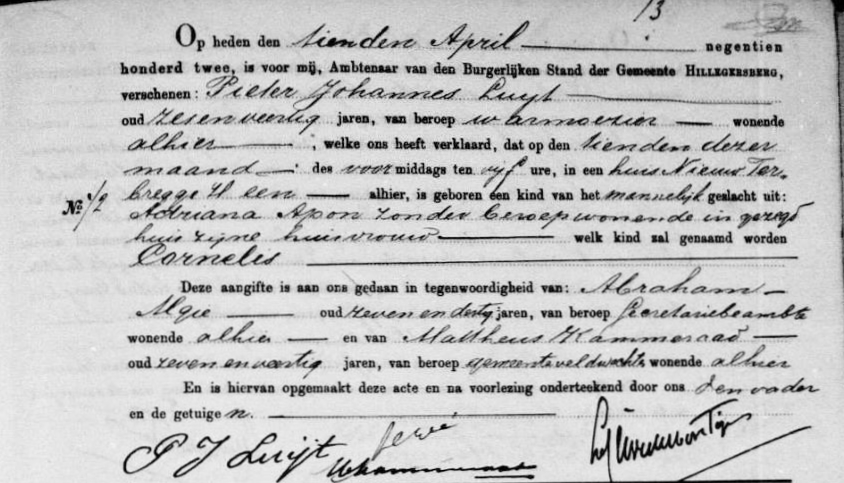 13
Op heden den tienden April negentien
honderd twee, is voor mij, Ambtenaar van den Burgerlijken Stand der Gemeente HILLEGERSBERG,
verschenen: Pieter Johannes Luyt
oud zesenveertig jaren, van beroep warmoezier wonende
alhier ; welke ons heeft verklaard, dat op den tienden dezer
maand des voormiddags ten vijf ure, in een huis Nieuw Ter-
bregge H een alhier, is geboren een kind van het mannelijk geslacht uit:
No.
Adriana Apon zonder beroep wonende in gezegd
huis zijne huisvrouw welk kind zal genaamd worden
Cornelis
Deze aangifte is aan ons gedaan in tegenwoordigheid van: Abraham
Algie oud zeven en dertig jaren, van beroep Secretariebeambte
wonende alhier en van Mattheus Kammeraad
oud zeven en veertig jaren, van beroep gemeenteveldwachter wonende alhier
En is hiervan opgemaakt deze acte en na voorlezing onderteekend door ons den vader
en de getuigen.
P J Luijt